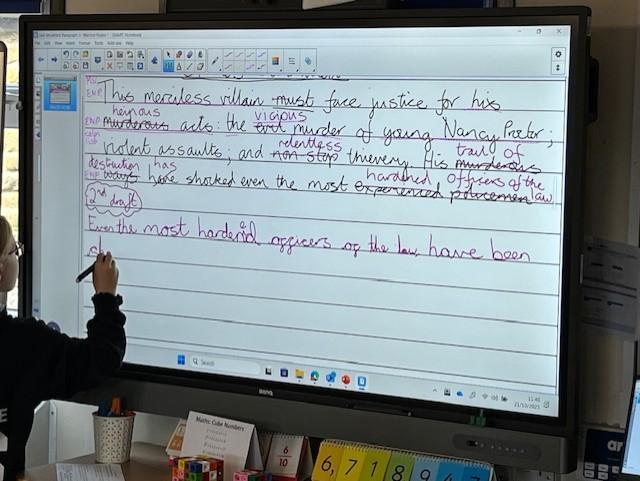 This merciless villain must face justice for his
heinous vicious
ENP murderous acts: the evil murder of young Nancy Protor;
relentless trail of
violent assaults; and non-stop thievery. His murderous
destruction has hardened officers of the
ENP ways have shocked even the most experienced policemen law
2nd draft
Even the most hardened officers of the law have been
sho
Search
11:41
21/10/2025
BENQ
Maths: Cube Numbers
6
10
6, 7 1 8 9 4 7